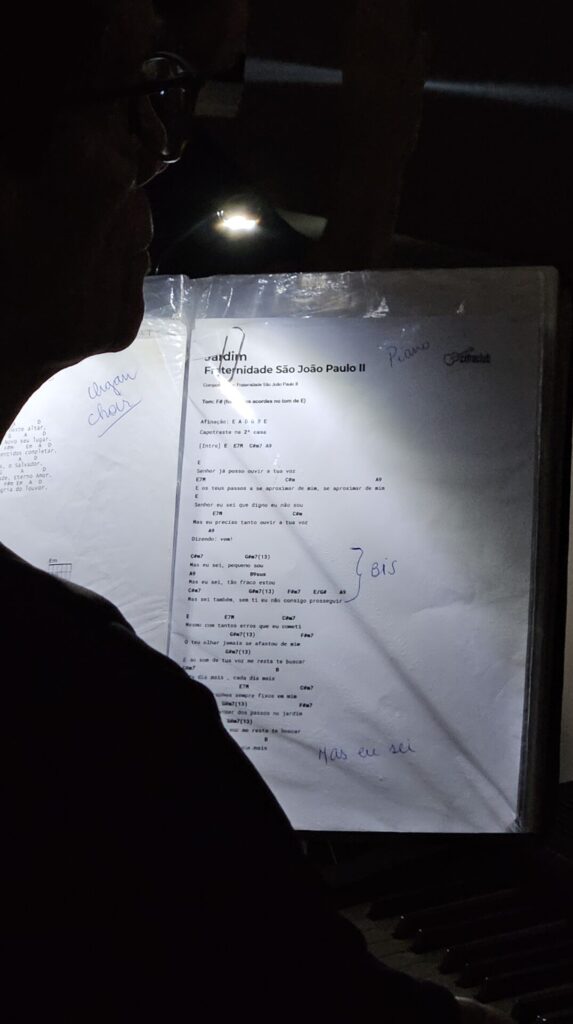 Organ
choir
D
A D
E A D
Novo seu lugar.
F#m Em A D
completar.
A D
, o Salvador.
A D
Eterno Amor.
F#m Em A D
do louvor.
Em
Jardim
Piano
Cifraclub
Fraternidade São João Paulo II
Fraternidade São João Paulo II
Tom: F# acordes no tom de E)
Afinação: E A D G B E
Capotraste na 2ª casa
[Intro] E E7M C#m7 A9
E
Senhor já posso ouvir a tua voz
E7M C#m A9
E os teus passos a se aproximar de mim, se aproximar de mim
E
Senhor eu sei que digno eu não sou
E7M C#m
Mas eu preciso tanto ouvir a tua voz
A9
Dizendo: vem!
C#m7 G#m7(13)
Mas eu sei, pequeno sou
A9 B9sus
Mas eu sei, tão fraco estou
BIS
C#m7 G#m7(13) F#m7 E/G# A9
Mas sei também, sem ti eu não consigo prosseguir
E E7M C#m7
Mesmo com tantos erros que eu cometi
G#m7(13) F#m7
O teu olhar jamais se afastou de mim
G#m7(13)
E ao som de tua voz me resta te buscar
C#m7 B
dia mais , cada dia mais
E7M C#m7
sempre fixos em mim
G#m7(13) F#m7
dos passos no jardim
G#m7(13)
voz me resta te buscar
B
dia mais
Mas eu sei